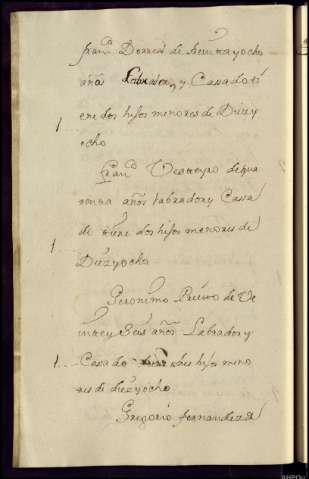 fran.co Borrex de treinta y ocho
años Labrador, y Casado ti
ene dos hijos menores de Diez y
1
ocho
fran.co de qua
renta años labrador y Casa
do tiene dos hijos menores de
1
Diez y ocho
Geronimo Prieto de Ve
inte y Seis años Labrador y
1. Casado tiene dos hijos meno
res de diez y ocho
Gregorio fernandez d
AHPOU